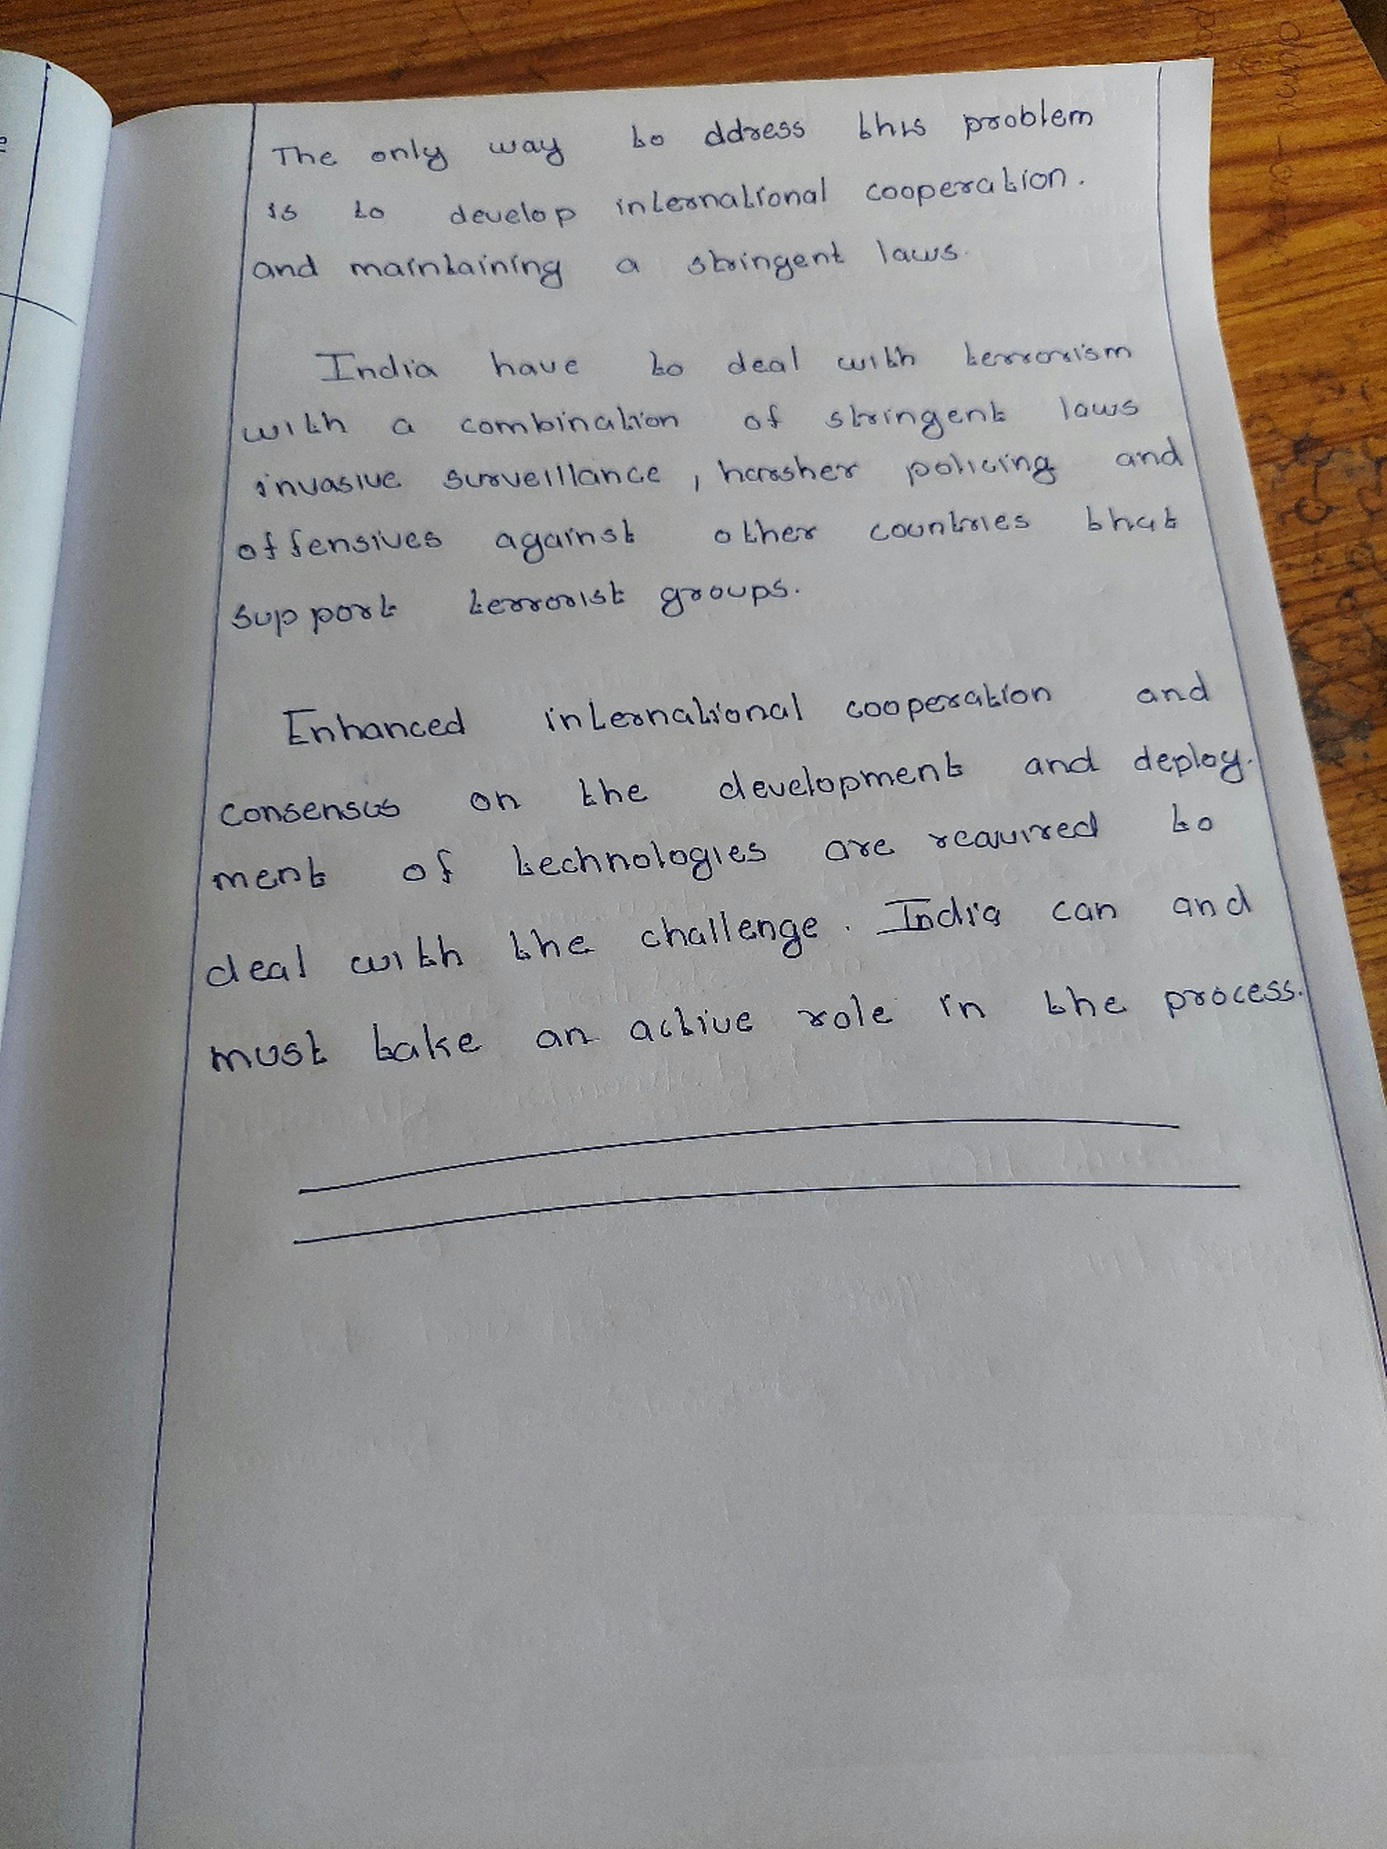 The only way to ddress this problem
is to develop international cooperation.
and maintaining a stringent laws.
India have to deal with terrorism
with a combination of stringent laws
invasive surveillance, harsher policing and
offensives against other countries that
support terrorist groups.
Enhanced international cooperation and
consensus on the development and deploy-
ment of technologies are required to
deal with the challenge. India can and
must take an active role in the process.